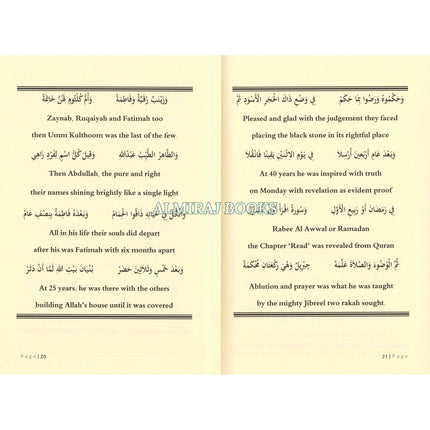 وَزَيْنَبٌ رُقَيَّةٌ وَفَاطِمَةْ وَأُمُّ كُلْثُومٍ لَهُنَّ خَاتِمَةْ
Zaynab, Ruqaiyah and Fatimah too
then Umm Kulthoom was the last of the few.
وَالطَّاهِرُ الطَّيِّبُ عَبْدُاللهِ وَقِيلَ كُلُّ اسْمٍ لِفَرْدٍ زَاهِي
Then Abdullah, the pure and right
their names shining brightly like a single light
وَالْكُلُّ فِي حَيَاتِهِ ذَاقُوا الْحِمَامْ وَبَعْدَهُ فَاطِمَةٌ بِنِصْفِ عَامْ
All in his life their souls did depart
after his was Fatimah with six months apart
وَبَعْدَ خَمْسٍ وَثَلَاثِينَ حَضَرْ بُنْيَانَ بَيْتِ اللهِ لَمَّا أَنْ دَثَرْ
At 25 years, he was there with the others
building Allah's house until it was covered
Page | 20
وَحَكَّمُوهُ وَرَضُوا بِمَا حَكَمْ فِي وَضْعِ ذَاكَ الْحَجَرِ الْأَسْوَدِ ثَمْ
Pleased and glad with the judgement they faced
placing the black stone in its rightful place
وَبَعْدَ عَامِ أَرْبَعِينَ أُرْسِلَا فِي يَوْمِ الِاثْنَيْنِ يَقِينًا فَانْقُلَا
At 40 years he was inspired with truth
on Monday with revelation as evident proof
فِي رَمَضَانَ أَوْ رَبِيعِ الْأَوَّلِ وَسُورَةُ اقْرَأْ أَوَّلُ الْمُنَزَّلِ
Rabee Al Awwal or Ramadan
the Chapter 'Read' was revealed from Quran
ثُمَّ الْوُضُوءَ وَالصَّلَاةَ عَلَّمَهْ جِبْرِيلُ وَهْيَ رَكْعَتَانِ مُحْكَمَةْ
Ablution and prayer was what he was taught
by the mighty Jibreel two rakah sought.
21 | Page
ALMIRAJ BOOKS